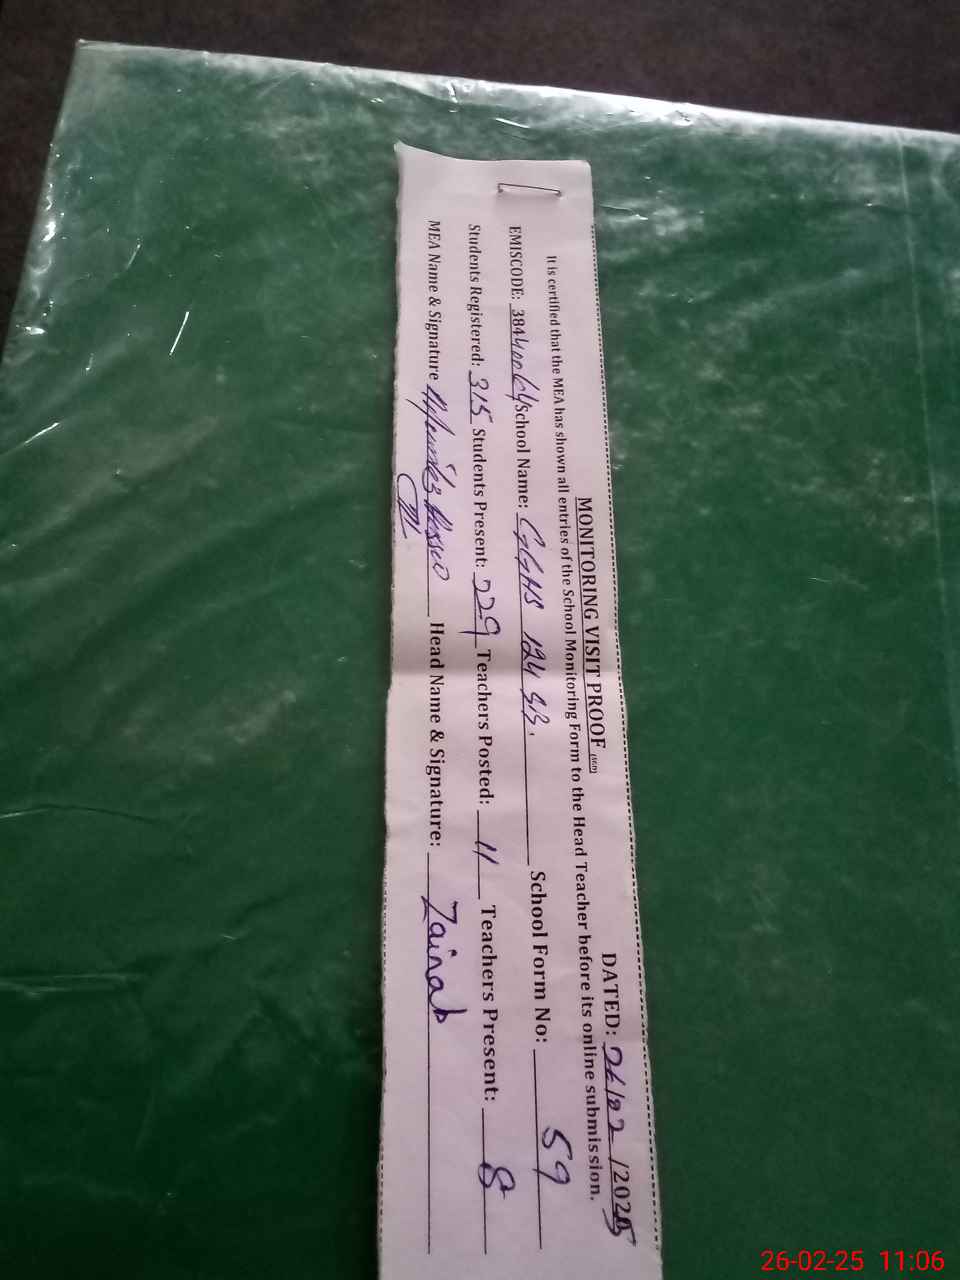 MONITORING VISIT PROOF
DATED: 26/02/2025
It is certified that the MEA has shown all entries of the School Monitoring Form to the Head Teacher before its online submission.
EMISCODE: 38440064 School Name: GGHS 124 SB. School Form No: 59
Students Registered: 315 Students Present: 229 Teachers Posted: 11 Teachers Present: 8
MEA Name & Signature Head Name & Signature: Zainab
26-02-25 11:06